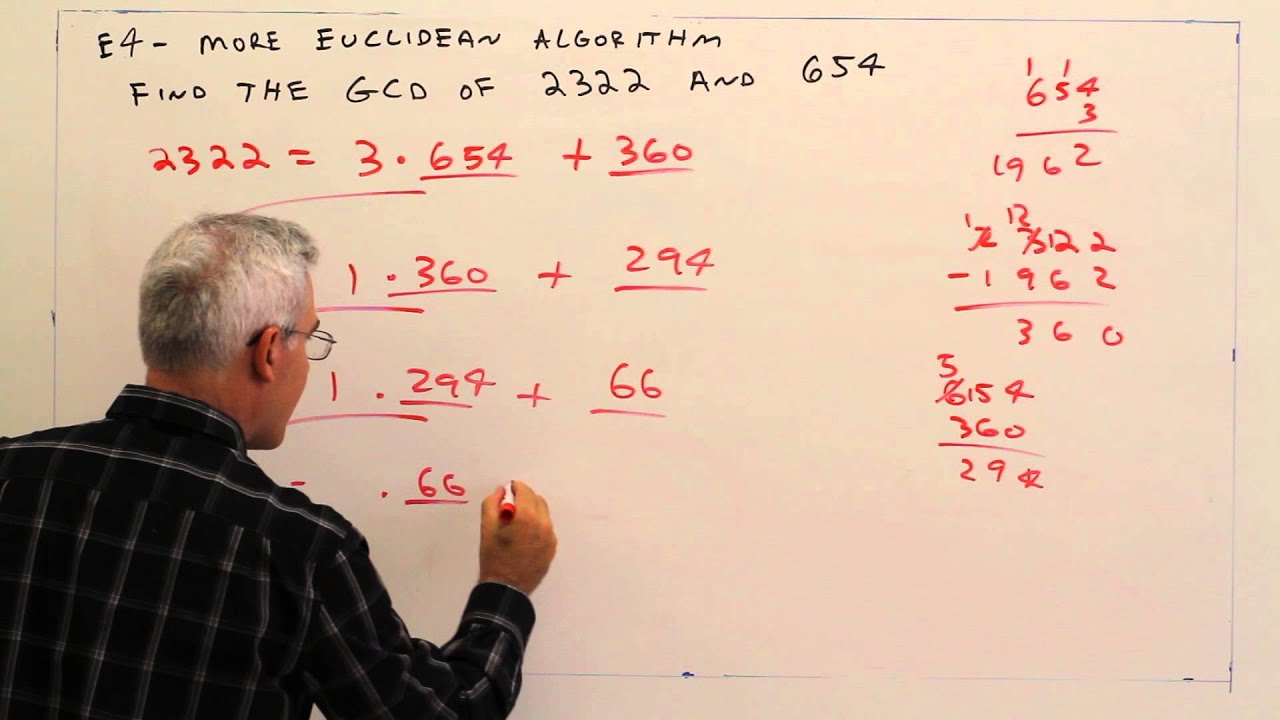 E4 - MORE EUCLIDEAN ALGORITHM
FIND THE GCD OF 2322 AND 654
2322 = 3 · 654 + 360
1 · 360 + 294
1 · 294 + 66
= · 66
1 1
654
3
1962
1 12
2 3 12 2
- 1962
360
5
6154
360
294